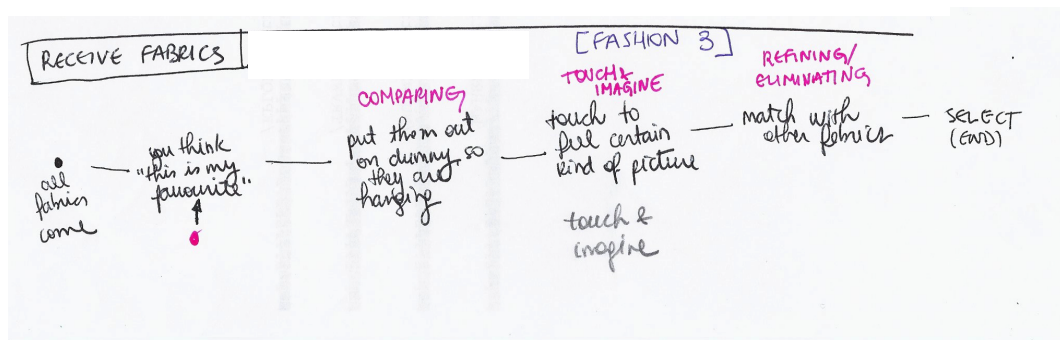 RECEIVE FABRICS
[FASHION 3]
all
fabrics
come
you think
"this is my
favourite"
COMPARING
put them out
on dummy, so
they are
hanging
TOUCH &
IMAGINE
touch to
feel certain
kind of picture
touch &
imagine
REFINING/
ELIMINATING
match with
other fabrics
SELECT
(END)